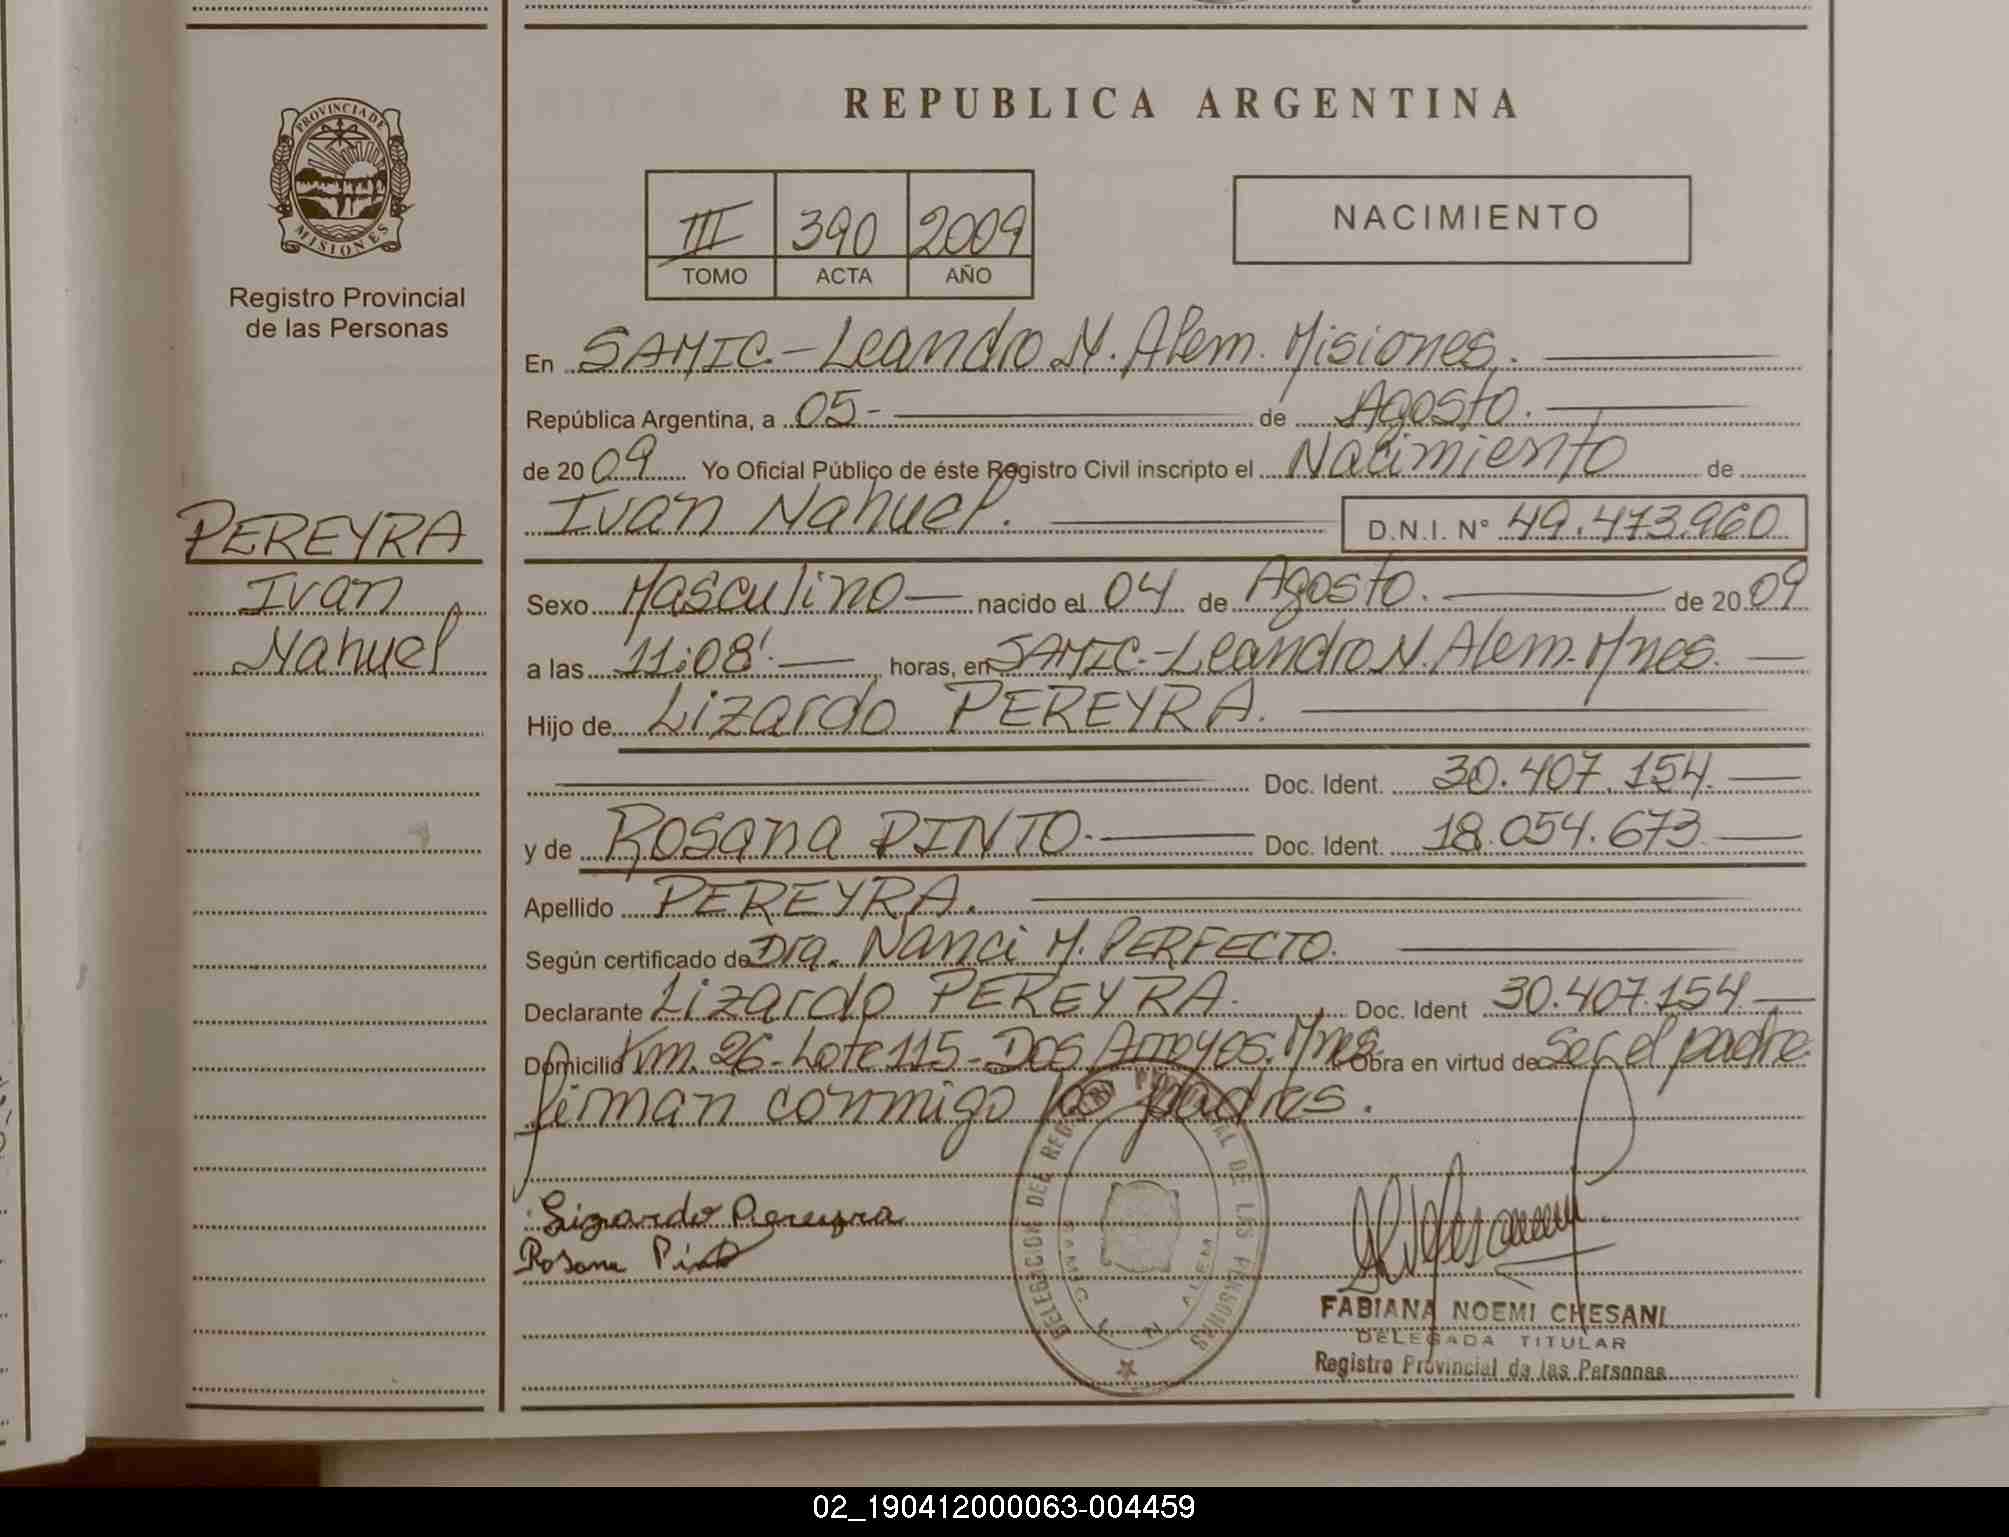 REPUBLICA ARGENTINA
PROVINCIA DE
MISIONES
Registro Provincial
de las Personas
III 390 2009
TOMO ACTA AÑO
NACIMIENTO
En SAMIC.- Leandro N. Alem. Misiones.
República Argentina, a 05- de Agosto.
de 2009 Yo Oficial Público de éste Registro Civil inscripto el Nacimiento de
Ivan Nahuel. D.N.I. N° 49.473.960
PEREYRA
Ivan
Nahuel
Sexo Masculino nacido el 04 de Agosto. de 2009
a las 11:08'. horas, en SAMIC.- Leandro N. Alem. Mnes.
Hijo de Lizardo PEREYRA.
Doc. Ident. 30.407.154.
y de Rosana PINTO. Doc. Ident. 18.054.673
Apellido PEREYRA.
Según certificado de Dra. Nanci M. PERFECTO.
Declarante Lizardo PEREYRA. Doc. Ident 30.407.154
Domicilio Km. 26- Lote 115- Dos Arroyos. Mnes. Obra en virtud de Ser el padre
firman conmigo los padres.
Lizardo Pereyra
Rosana Pinto
DELEGACION DEL REGISTRO PROVINCIAL DE LAS PERSONAS
SAMIC L. N. ALEM
FABIANA NOEMI CHESANI
DELEGADA TITULAR
Registro Provincial de las Personas
02_190412000063-004459